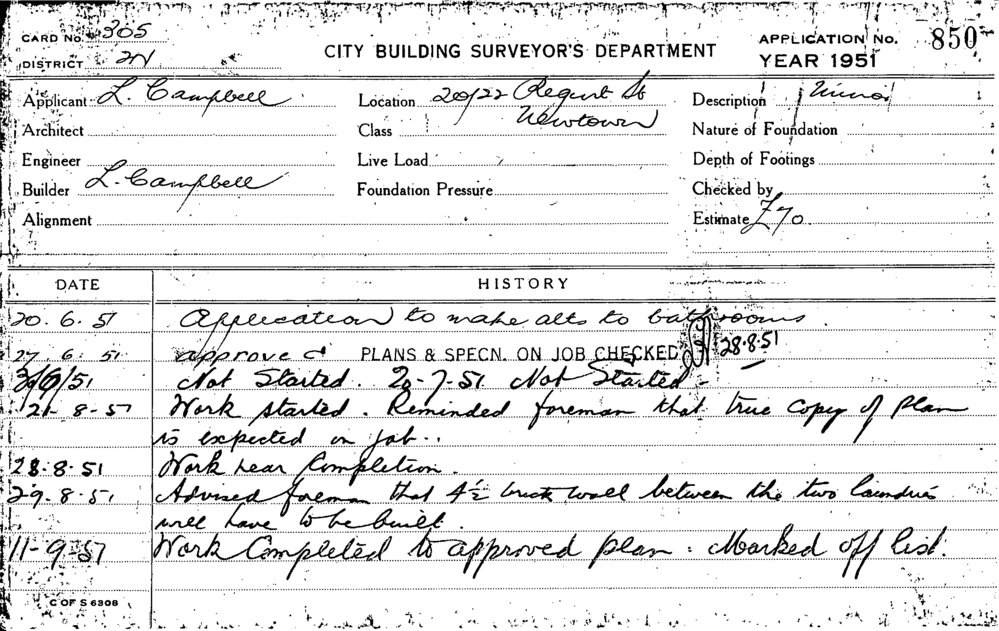 CARD No. 305
DISTRICT
CITY BUILDING SURVEYOR'S DEPARTMENT
APPLICATION No. 850
YEAR 1951
Applicant L. Campbell
Location 20/22 Regent St
Newtown
Description Minor
Architect
Class
Nature of Foundation
Engineer
Live Load
Depth of Footings
Builder L. Campbell
Foundation Pressure
Checked by
Alignment
Estimate £70
DATE HISTORY
20.6.51 Application to make alts to bathrooms
27 6 51 approved PLANS & SPECN. ON JOB CHECKED 28.8.51
Not Started. 20-7-51 Not Started
21-8-51 Work started. Reminded foreman that true copy of plan
is expected on job..
28.8.51 Work near Completion.
29.8.51 Advised foreman that 4½ brick wall between the two laundries
will have to be built.
11-9-51 Work Completed to approved plan: Marked off list.
C OF S 6308